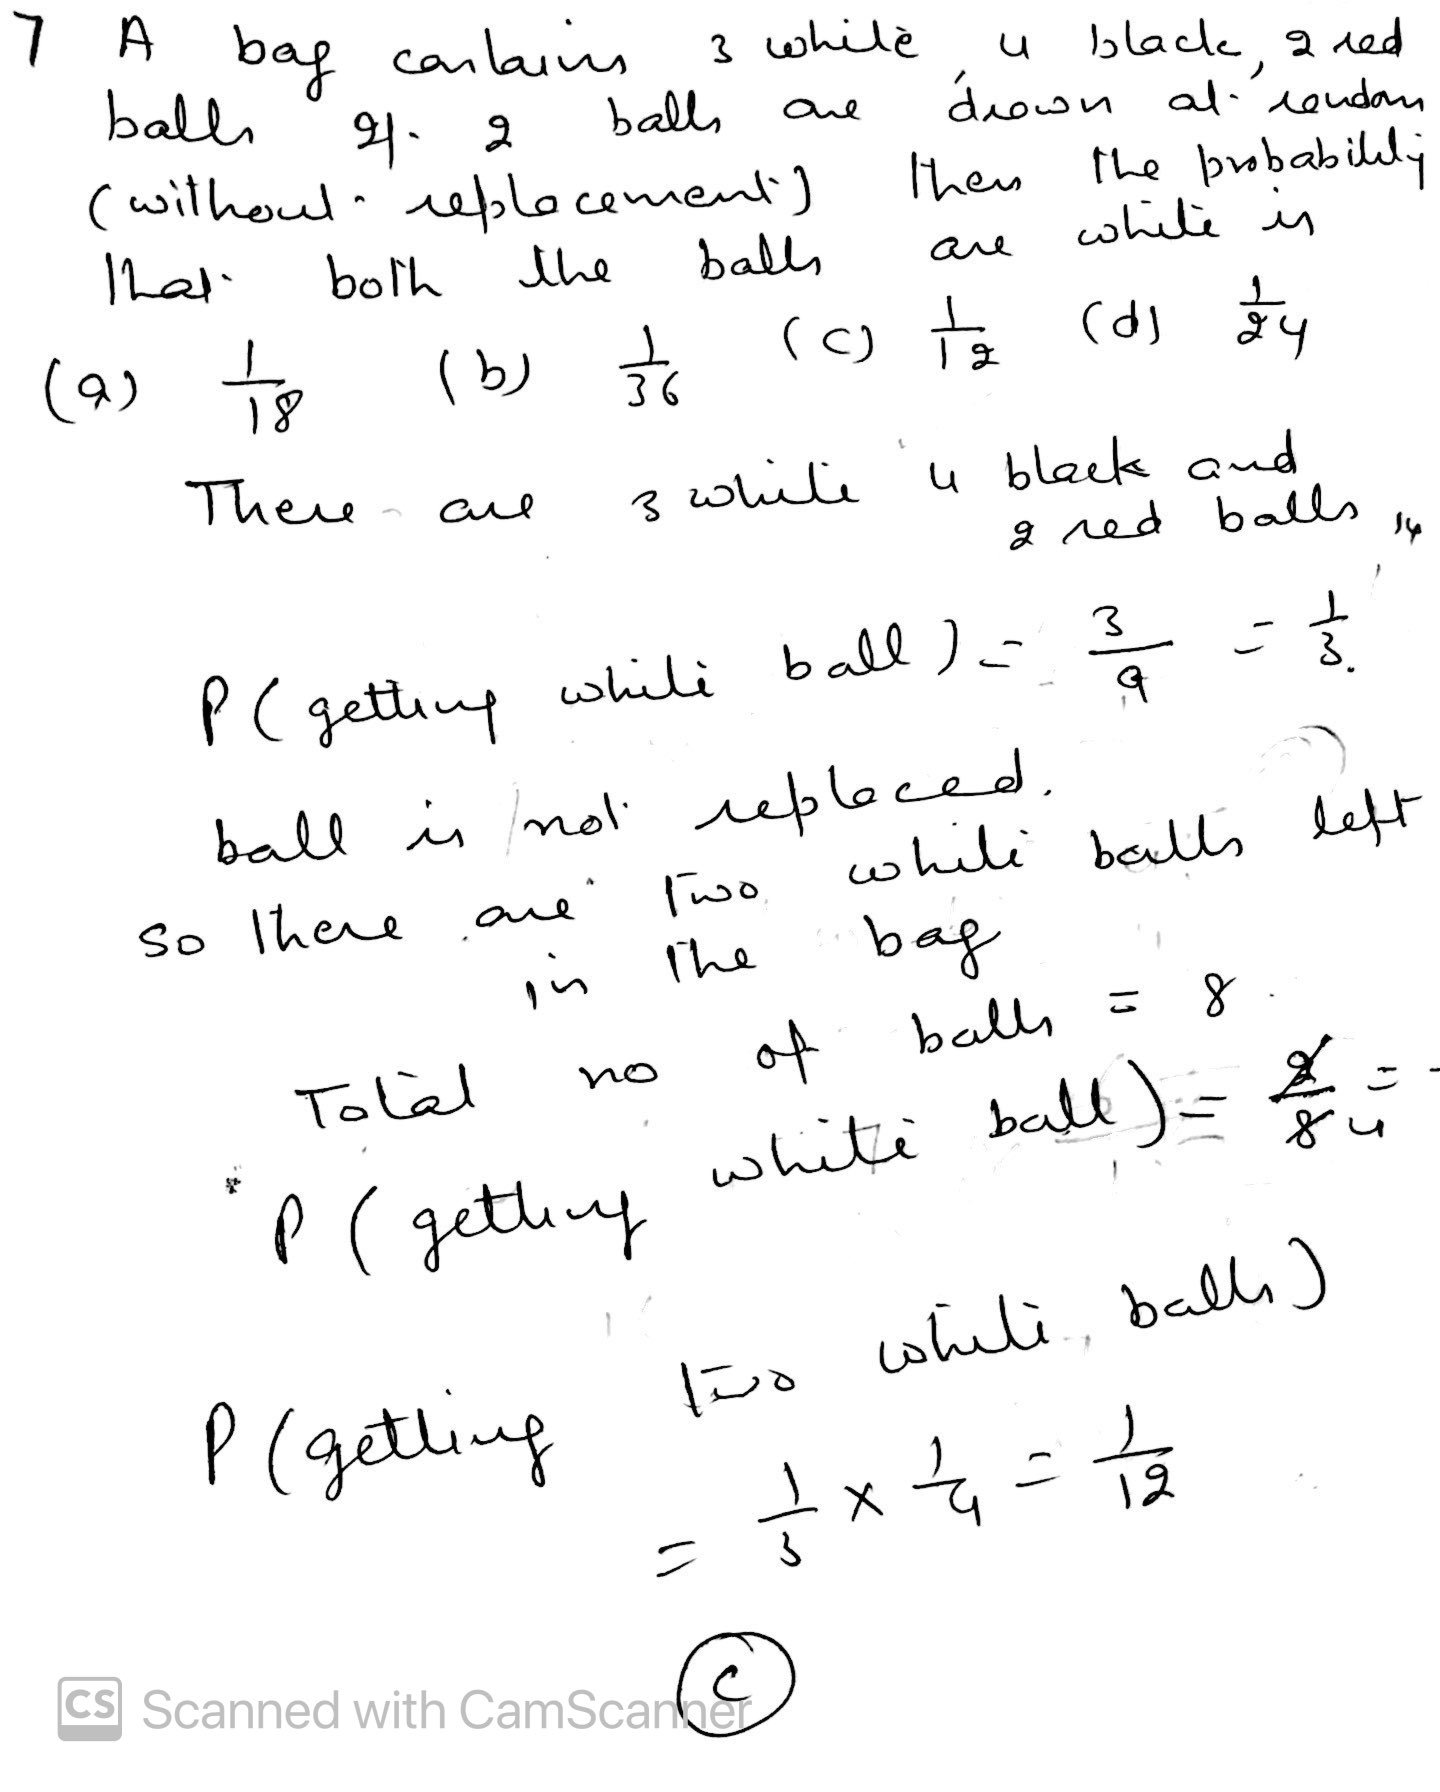 7 A bag contains 3 white, 4 black, 2 red
balls If 2 balls are drawn at random
(without replacement) then the probability
that both the balls are white is
(a) 1/18 (b) 1/36 (c) 1/12 (d) 1/24
There are 3 white 4 black and
2 red balls
P(getting white ball) = 3/9 = 1/3.
ball is not replaced.
so there are two white balls left
in the bag
Total no of balls = 8
P(getting white ball) = 2/8 4 =
P(getting two white balls)
= 1/3 x 1/4 = 1/12
C
CS Scanned with CamScanner